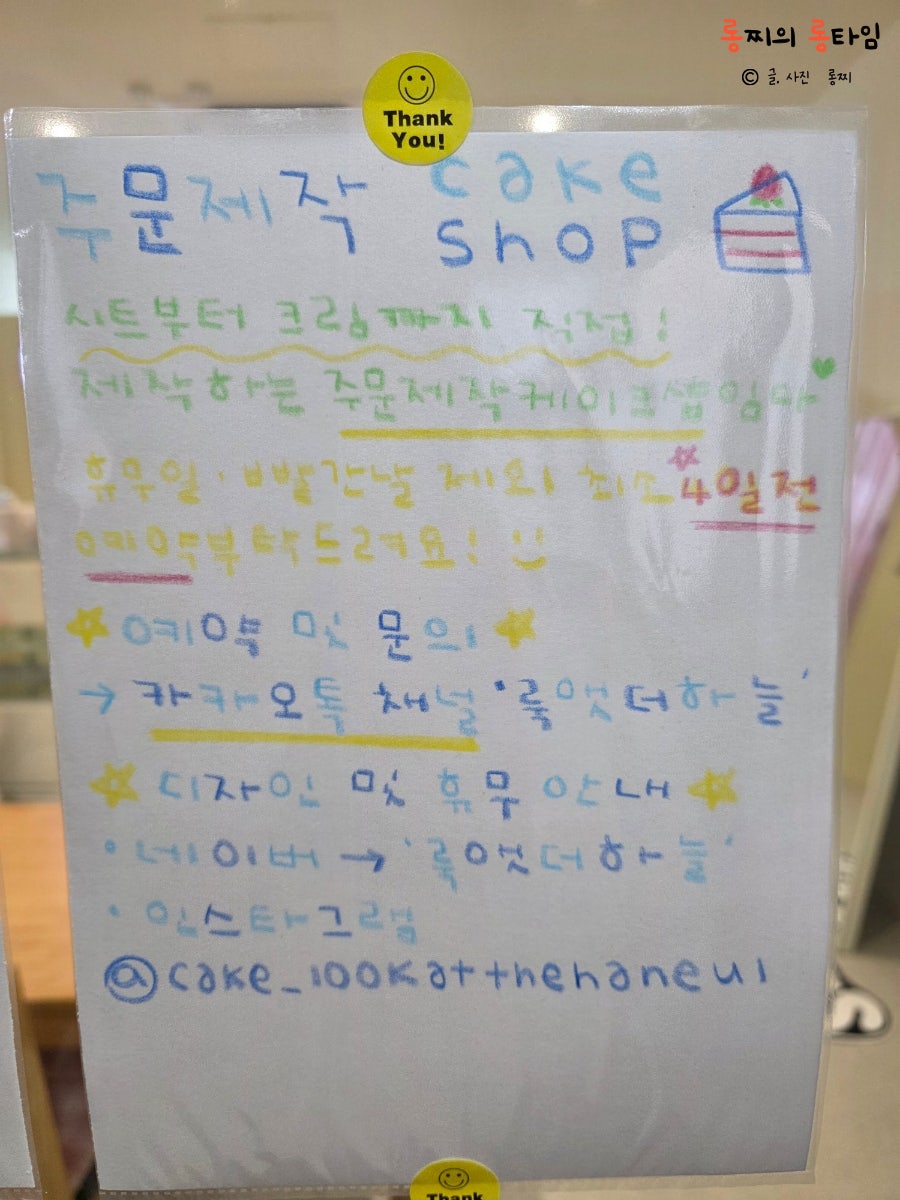 롱찌의 롱타임
© 글, 사진 롱찌
Thank
You!
주문제작 cake
shop
시트부터 크림까지 직접!
제작하는 주문제작케이크샵입니다
휴무일·빨간날 제외 최소 4일전
예약부탁드려요!
예약 및 문의
→ 카카오톡 채널 '룩앳더하늘'
디자인 및 휴무 안내
· 네이버 → '룩앳더하늘'
· 인스타그램
@cake_lookatthehaneul
Thank